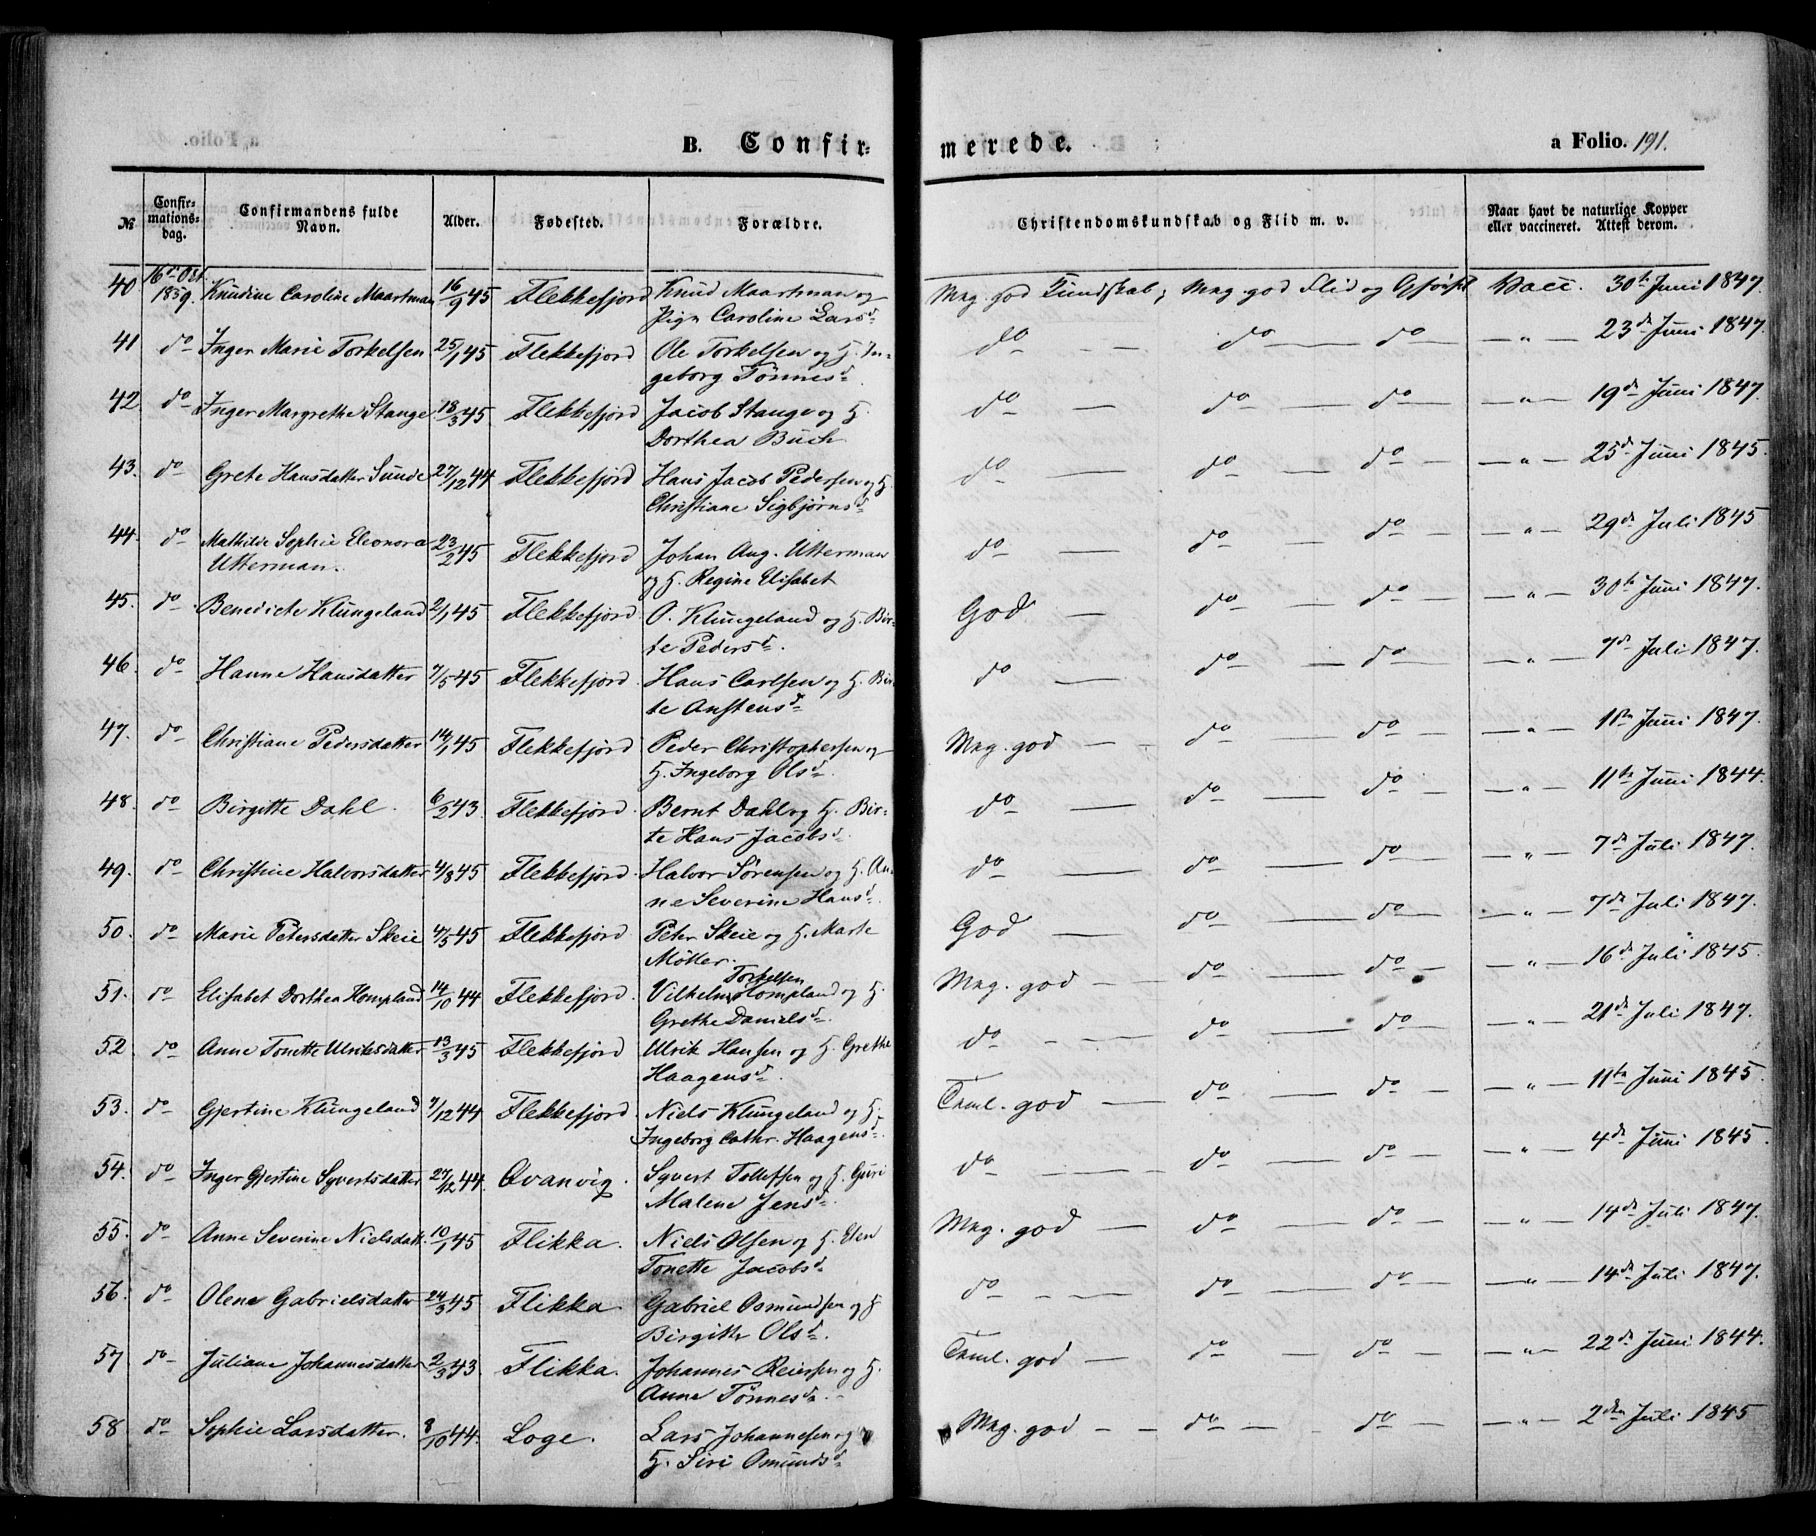 B. Confirmerede. a Folio. 191.
№ Confirmationsdag. Confirmandens fulde Navn. Alder. Fødested. Forældre. Christendomskundskab og Flid m. v. Naar havt de naturlige Kopper eller vaccineret. Attest derom.
40. 16de Oct. 1859. Knudine Caroline Maartman 16/9 45 Flekkefjord Knud Maartman og Pige Caroline Larsd. Meg. god Kundskab, Meg. god Flid og Vacc. 30te Juni 1847.
41 do Inger Marie Torkelsen 25/1 45 Flekkefjord Ole Torkelsen og H. Ingeborg Tønnesd. do — do — do — " — 23de Juni 1847.
42. do Inger Margrethe Stange 18/3 45 Flekkefjord Jacob Stange og H. Dorthea Buch do — do — do — " — 19de Juni 1847.
43. do Grete Hansdatter Sunde 27/12 44 Flekkefjord Hans Jacob Pedersen og H. Christiane Sigbjørnsd. do — do — do — " — 25de Juni 1845.
44. do Mathilde Sophie Eleonora Utterman. 23/2 45 Flekkefjord Johan Aug. Utterman og H. Regine Elisabet do — do — do — " — 29de Juli 1845
45. do Benedicte Klungeland 2/1 45 Flekkefjord O. Klungeland og H. Birte Pedersd. God — do — do — " — 30te Juni 1847.
46 do Hanne Hansdatter 7/5 45 Flekkefjord. Hans Carlsen og H. Birte Anstensd. do — do — do — " — 7de Juli 1847.
47. do Christiane Pedersdatter 14/1 45 Flekkefjord Peder Christophersen og H. Ingeborg Olsd. Meg. god — do — do — " — Juni 1847.
48. do Birgitte Dahl. 6/2 43 Flekkefjord. Bernt Dahl og H. Birte Hans Jacobsd. do — do — do — " — 11te Juni 1844.
49. do Christine Halvorsdatter 4/8 45 Flekkefjord. Halvor Sørensen og H. Anne Severine Hansd. do — do — do — " — 7de Juli 1847.
50. do Marie Petersdatter Skeie 4/5 45 Flekkefjord Peter Skeie og H. Marte Møller. God — do — do — " — 7de Juli 1847.
51. do Elisabet Dorthea Hompland 14/10 44 Flekkefjord. Vilhelm Torkelsen Hompland og H. Grethe Danielsd. Meg. god — do — do — " — 16de Juli 1845.
52 do Anne Tonette Ulriksdatter 13/3 45 Flekkefjord Ulrik Hansen og H. Grethe Haagensd. do — do — do — " — 21de Juli 1847.
53. do Gjertine Klungeland 7/12 44 Flekkefjord Niels Klungeland og H. Ingeborg Cathr. Haagensd. Teml. god — do — do — " — 11te Juni 1845.
54. do Inger Gjertine Syvertsdatter 27/12 44. Qvanvig. Syvert Tollefsen og H. Guri Malene Jensd. do — do — do — " — 4de Juni 1845.
55. do Anne Severine Nielsdatt. 10/1 45 Flikka. Niels Olsen og H. Elen Tonette Jacobsd. Meg. god — do — do — " — 14de Juli 1847.
56. do Olene Gabrielsdatter 24/3 45 Flikka. Gabriel Osmundsen og H. Birgitte Olsd. do — do — do — " — 14de Juli 1847.
57 do Juliane Johannesdatter 2/3 43 Flikka. Johannes Reiersen og H. Anne Tønnesd. Teml. god — do — do — " — 22de Juni 1844.
58 do Sophie Larsdatter. 8/10 44. Loge. Lars Johannesen og H. Siri Osmundsd. Meg. god — do — do — " — 2den Juli 1845